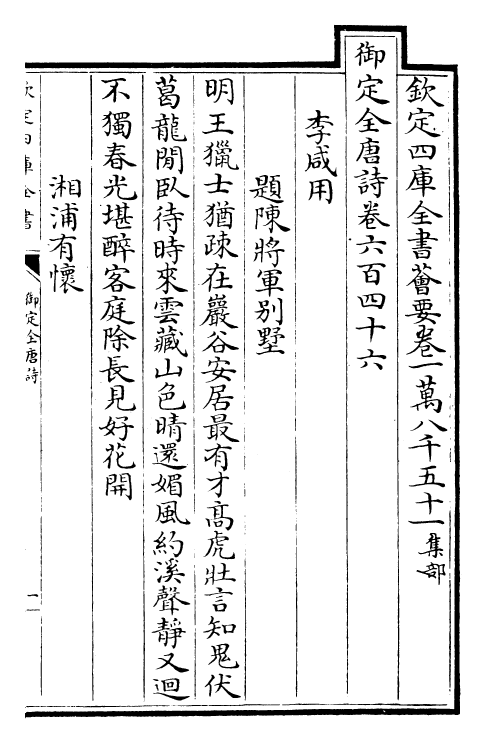 欽定四庫全書薈要卷一萬八千五十一集部
御定全唐詩卷六百四十六
李咸用
題陳將軍別墅
明王獵士猶疎在巖谷安居最有才高虎壯言知鬼伏
葛龍閒臥待時來雲藏山色晴還媚風約溪聲靜又迴
不獨春光堪醉客庭除長見好花開
湘浦有懷
欽定四庫全書
御定全唐詩
一